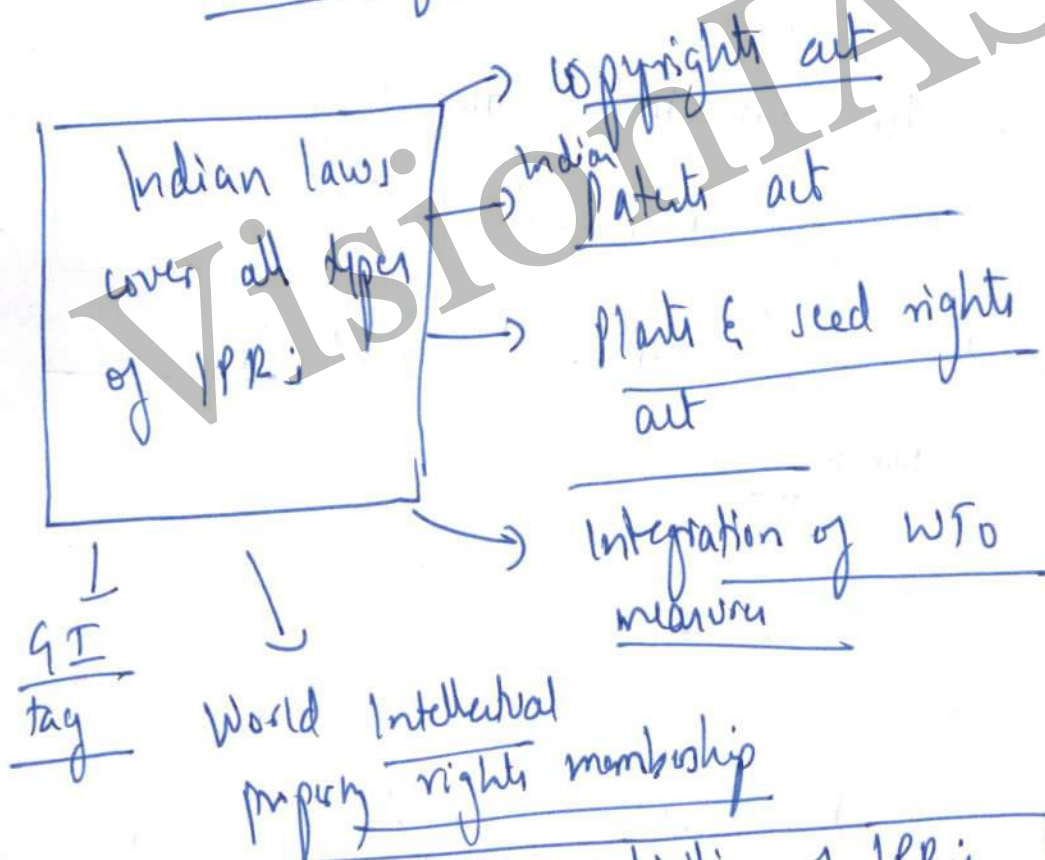 Indian laws
cover all types
of IPR;
Copyrights act
Indian
Patents act
Plants & seed rights
act
Integration of WTO
measures
GI
tag
World Intellectual
property rights membership
of IPR:
VisionIAS